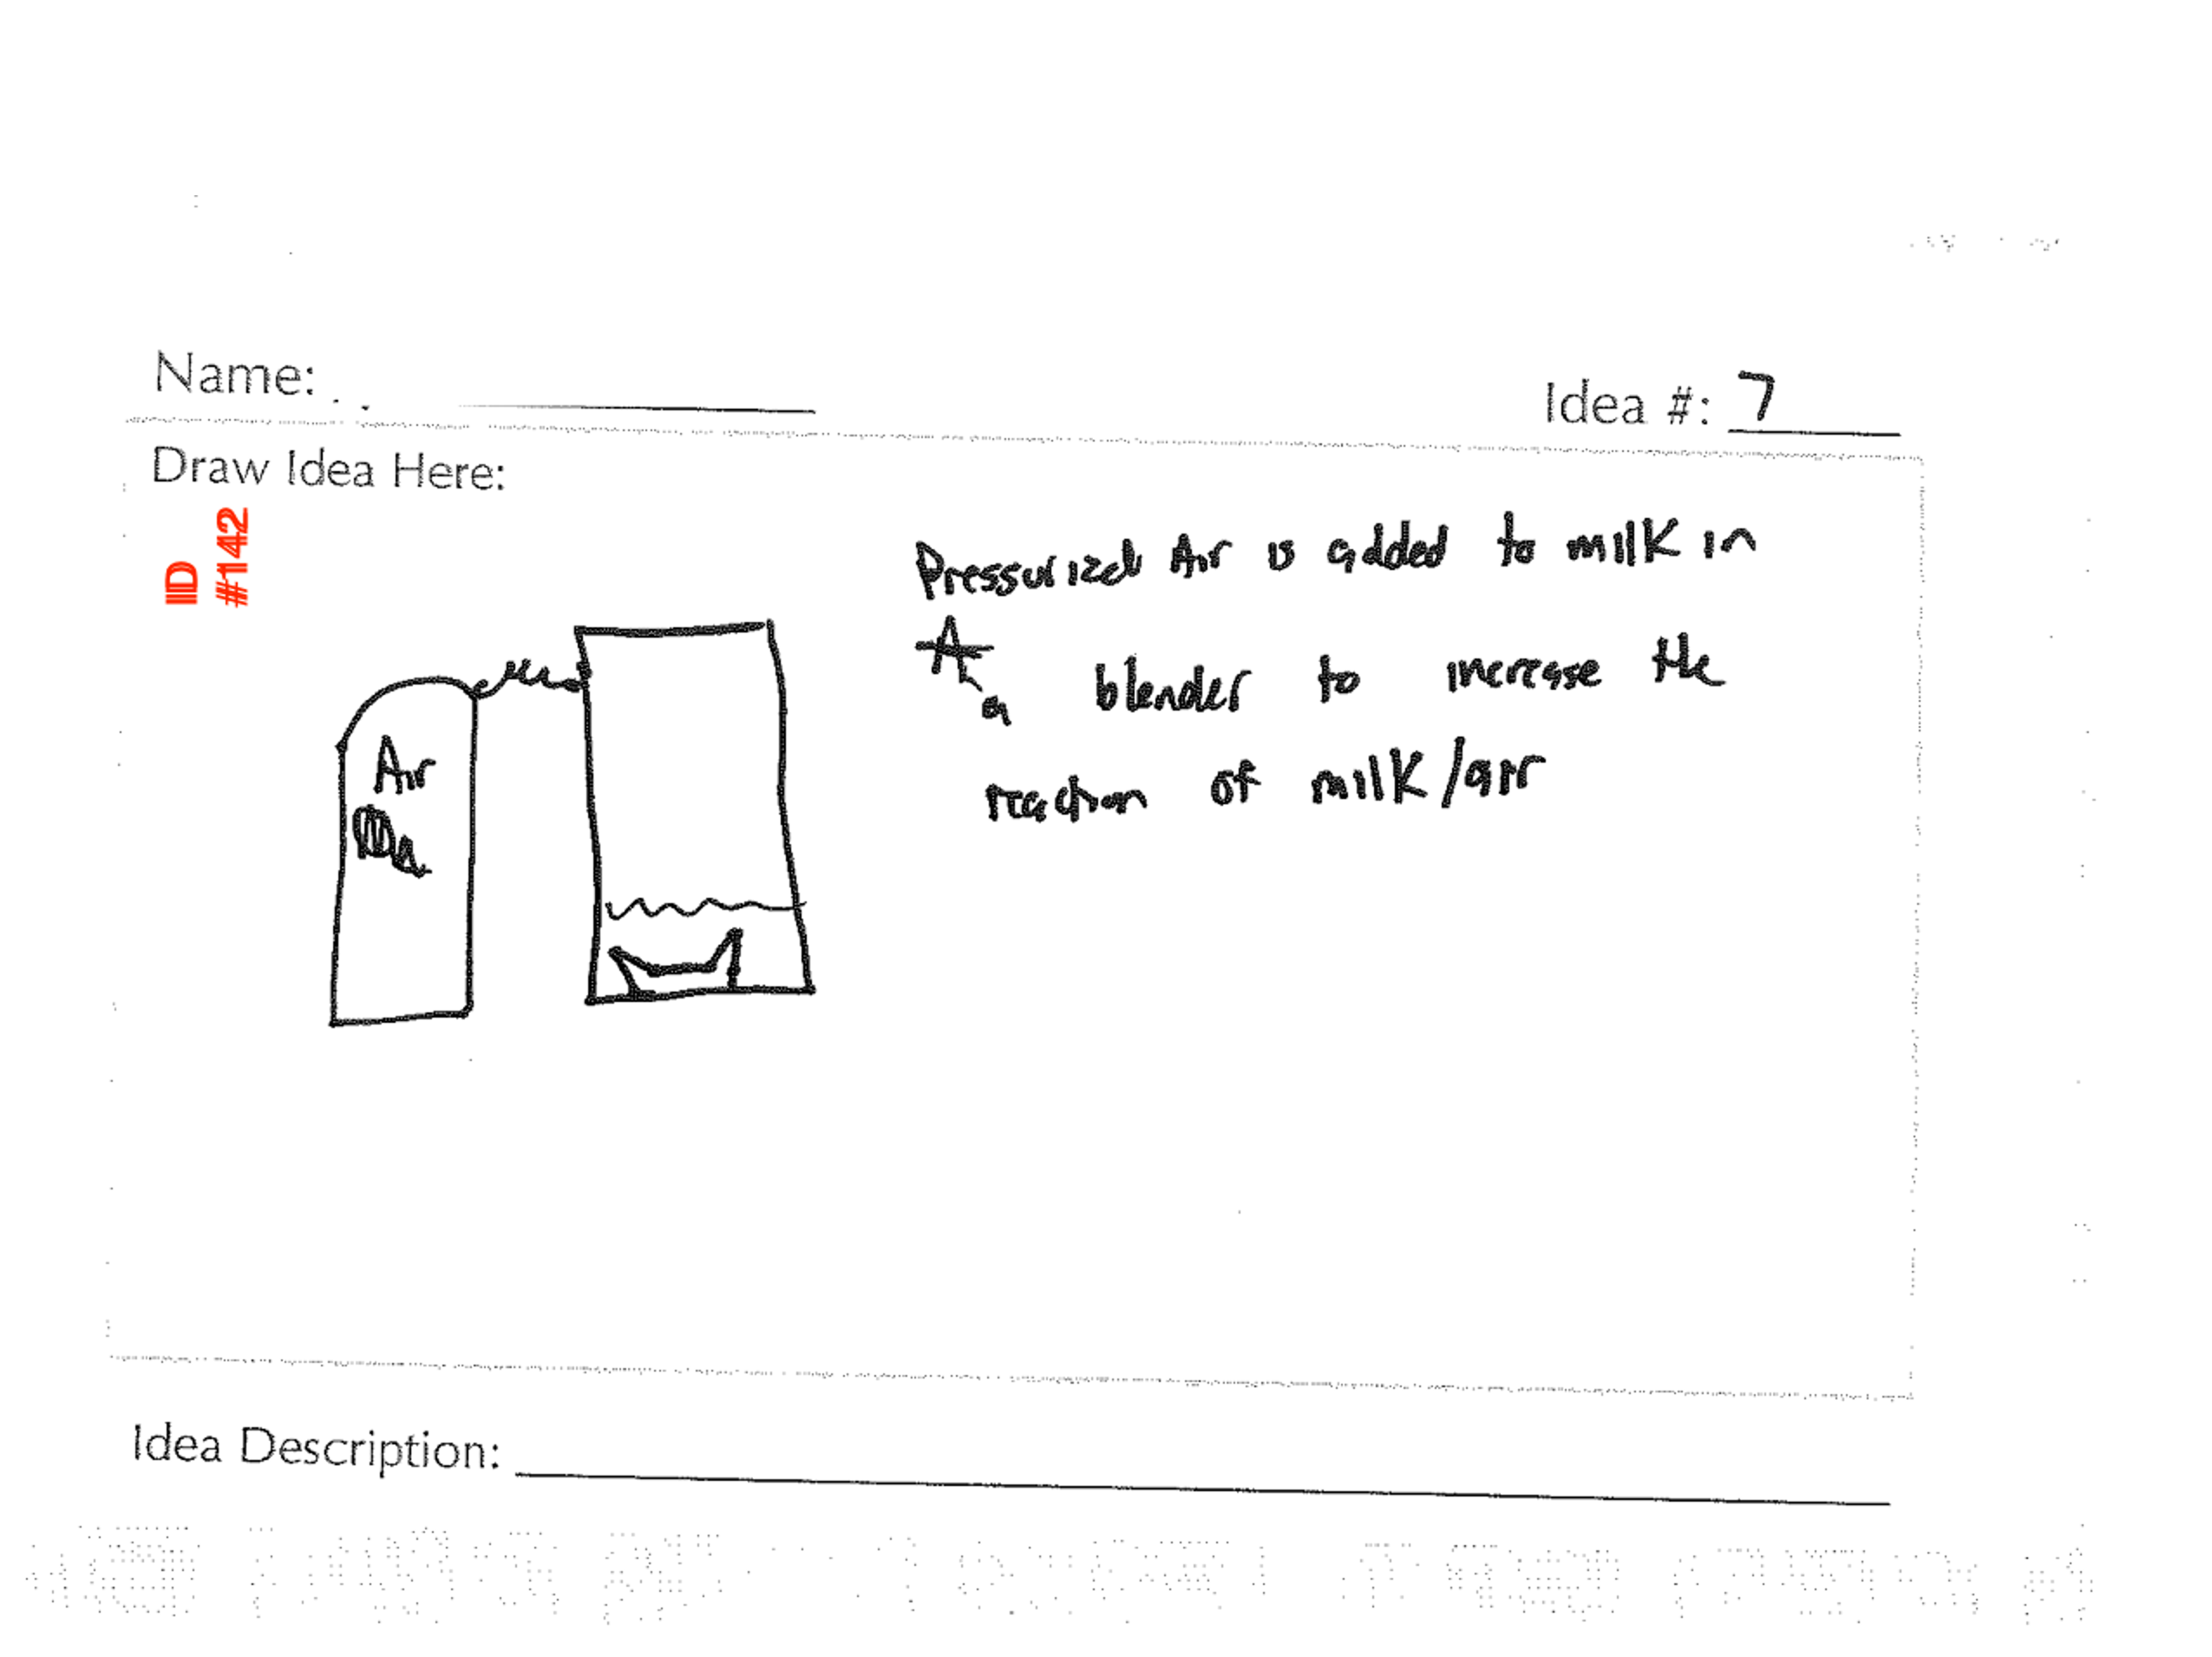 Name:
Idea #: 7
Draw Idea Here:
ID
#142
Pressurized Air is added to milk in
a blender to increase the
reaction of milk/air
Air
Idea Description: